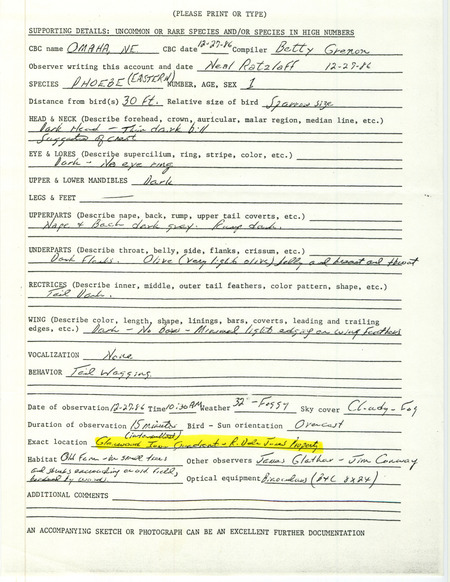 (PLEASE PRINT OR TYPE)
SUPPORTING DETAILS: UNCOMMON OR RARE SPECIES AND/OR SPECIES IN HIGH NUMBERS
CBC name OMAHA, NE. CBC date 12-27-86 Compiler Betty Grenon
Observer writing this account and date Neal Ratzlaff 12-27-86
SPECIES PHOEBE (EASTERN) NUMBER, AGE, SEX 1
Distance from bird(s) 30 Ft. Relative size of bird Sparrow size
HEAD & NECK (Describe forehead, crown, auricular, malar region, median line, etc.)
Dark Head - Thin dark bill
Suggests of crest
EYE & LORES (Describe supercilium, ring, stripe, color, etc.)
Dark - No eye ring
UPPER & LOWER MANDIBLES Dark
LEGS & FEET
UPPERPARTS (Describe nape, back, rump, upper tail coverts, etc.)
Nape & Back dark gray. Rump dark.
UNDERPARTS (Describe throat, belly, side, flanks, crissum, etc.)
Dark Flanks. Olive (very light olive) belly and breast and throat
RECTRICES (Describe inner, middle, outer tail feathers, color pattern, shape, etc.)
Tail Dark.
WING (Describe color, length, shape, linings, bars, coverts, leading and trailing
edges, etc.) Dark - No Bars - Minimal light edging on wing feathers
VOCALIZATION None
BEHAVIOR Tail Wagging
Date of observation 12-27-86 Time 10:30 AM Weather 32° - Foggy Sky cover Cloudy - Fog
Duration of observation 15 minutes Bird - Sun orientation Overcast
(intermittent)
Exact location Glenwood Iowa Quadrant - R. Dale Property
Habitat Old Farm - small trees Other observers James Glather - Jim Conway
and shrubs encroaching on old field,
backed by woods. Optical equipment Binoculars (B+L 8x24)
ADDITIONAL COMMENTS
AN ACCOMPANYING SKETCH OR PHOTOGRAPH CAN BE AN EXCELLENT FURTHER DOCUMENTATION